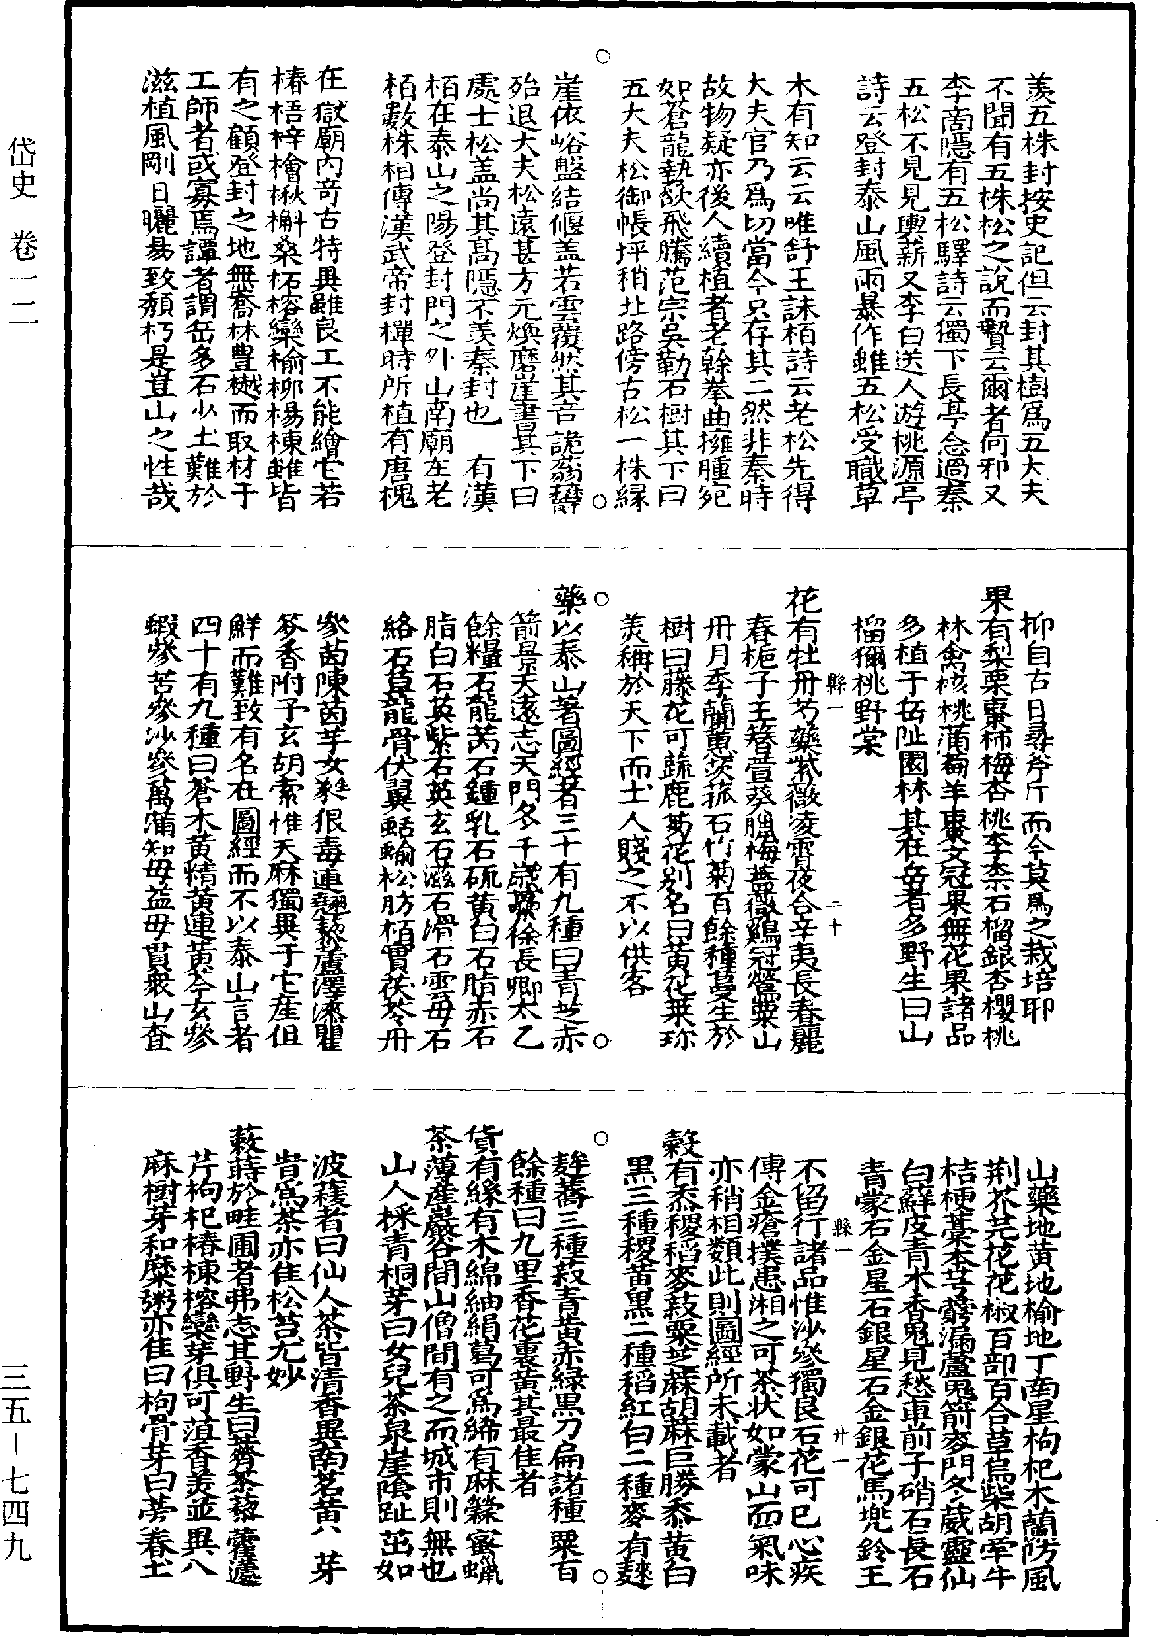 羨五株封按史記但云封其樹爲五大夫
不聞有五株松之說而贄云爾者何邪又
李商隱有五松驛詩云獨下長亭念過秦
五松不見見輿薪又李白送人遊桃源亭
詩云登封泰山風雨暴作雖五松受職草
木有知云云唯舒王詠栢詩云老松先得
大夫官乃爲切當今只存其二然非秦時
故物疑亦後人續植者老榦拳曲擁腫宛
如蒼龍蟄欲飛騰范宗吳勒石樹其下曰
五大夫松御帳坪稍北路傍古松一株緑
崖依峪盤結偃盖若雲覆然其音詭蒻
殆退大夫松遠甚方元煥磨崖書其下曰
處士松盖尚其高隱不羨秦封也 有漢
栢在泰山之陽登封門之外山南廟在老
栢數株相傳漢武帝封禪時所植有唐槐
在嶽廟內奇古特異雖良工不能繪它若
椿梧梓檜楸槲桑柘榕欒榆柳楊楝雖皆
有之顧登封之地無喬林豊樾而取材于
工師者或寡焉譚者謂岳多石少土難於
滋植風剛日曬易致頽朽是豈山之性哉
抑自古日尋斧斤而今莫爲之栽培耶
果有梨栗棗柿梅杏桃李柰石榴銀杏櫻桃
林禽核桃蒲萄羊棗文冠果無花果諸品
多植于岳阯園林其在岳者多野生曰山
榴獼桃野棠
花有牡丹芍藥紫薇凌霄夜合辛夷長春麗
春梔子玉簪萱葵臘梅薔薇鷄冠罌粟山
丹月季蘭蕙茨菰石竹菊百餘種蔓生於
樹曰藤花可蔬鹿葱花别名曰黄花菜珎
羨稱於天下而土人賤之不以供客
藥以泰山著圖經者三十有九種曰青芝赤
箭景天遠志天門冬千歲虆徐長卿太乙
餘糧石龍芮石鍾乳石硫黄白石脂赤石
脂白石英紫石英玄石滋石滑石雲母石
絡石草龍骨伏翼蛞蝓松肪栢實茯苓丹
參茵陳茵芋女萎狼毒連翹藜蘆澤漆瞿
麥香附子玄胡索惟天麻獨異于它産但
鮮而難致有名在圖經而不以泰山言者
四十有九種曰蒼术黄精黄連黄芩玄參
蝦參苦參沙參萬蒲知母益母貫衆山查
山藥地黄地榆地丁南星枸杞木蘭防風
荆芥芫花花椒百部百合草烏柴胡牽牛
桔梗藁本芎藭漏蘆鬼箭麥門冬葳靈仙
白鮮皮青木香鬼見愁車前子硝石長石
青蒙石金星石銀星石金銀花馬兜鈴王
不留行諸品惟沙參獨良石花可已心疾
傅金瘡撲患湘之可茶状如蒙山而氣味
亦稍相類此則圖經所未載者
穀有黍稷稻麥菽粟芝蔴胡麻巨勝黍黄白
黒三種稷黄黒二種稻紅白二種麥有䴬
麰蕎三種菽青黄赤緑黒刀扁諸種粟百
餘種曰九里香花裏黄其最佳者
貨有絲有木綿紬絹葛可爲絺有麻檾蜜蠟
茶薄産巖谷間山僧間有之而城市則無也
山人採青桐芽曰女兒茶泉崖陰趾茁如
波薐者曰仙人茶皆清香異南茗黄八芽
旹爲茶亦佳松苔尤妙
蔌蒔於畦圃者弗志其野生曰薺荼藜藿薖
芹枸杞椿楝榕欒芽俱可菹香美並異八
麻樹芽和糜粥亦佳曰枸骨芽曰蒡春土
岱史 卷一二
三五－七四九
縣一
二十
縣一
廿一